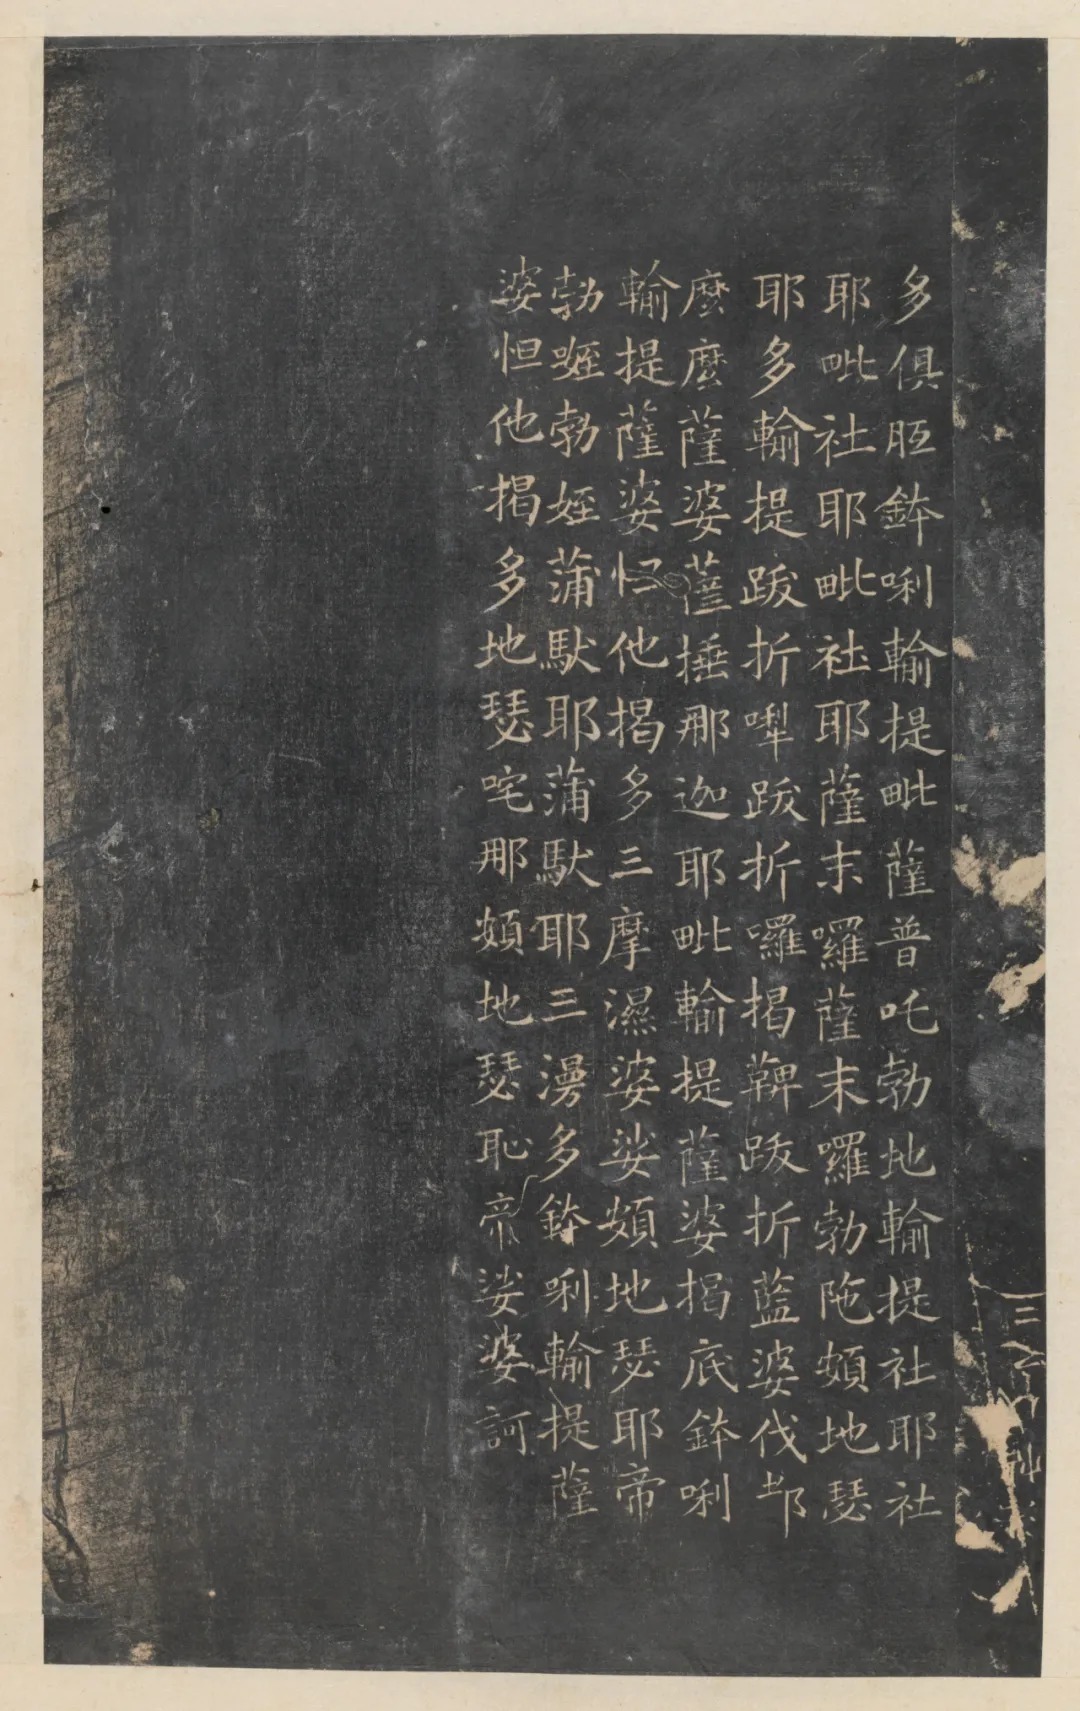 多俱胝鉢唎輸提毗薩普吒勃地輸提社耶社
耶毗社耶毗社耶薩末囉薩末囉勃陁頞地瑟
耶多輸提跋折㗚跋折囉揭鞞跋折藍婆伐都
麼麼薩婆薩捶那迦耶毗輸提薩婆揭底鉢唎
輸提薩婆怛他揭多三摩濕婆娑頞地瑟耶帝
勃勃姪蒲馱耶蒲馱耶三漫多鉢唎輸提薩
婆怛他揭多地瑟咤那頞地瑟恥帝娑婆訶